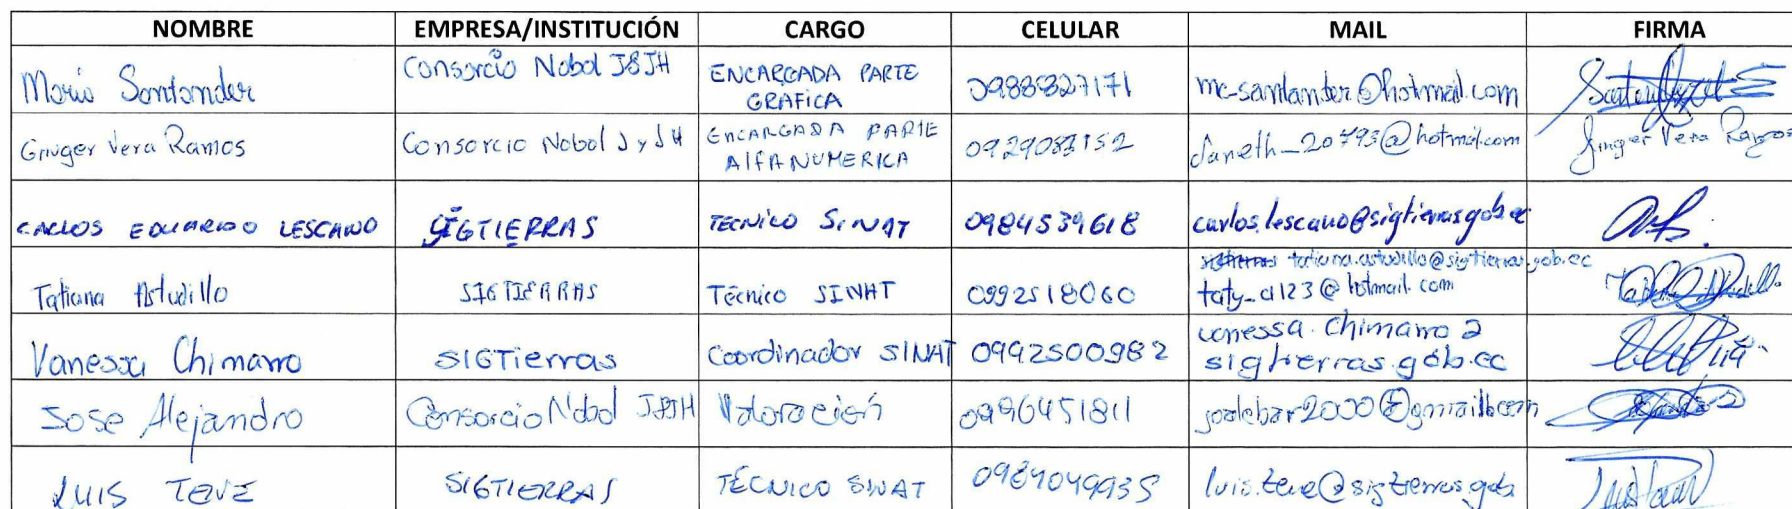 NOMBRE EMPRESA/INSTITUCIÓN CARGO CELULAR MAIL FIRMA
Maria Santander Consorcio Nobol J&JH ENCARGADA PARTE GRAFICA 0983827171 mc-santander@hotmail.com
Ginger Vera Ramos Consorcio Nobol J y JH ENCARGADA PARTE ALFANUMERICA Janeth_20793@hotmail.com Ginger Vera Ramos
CARLOS EDUARDO LESCANO SIGTIERRAS TECNICO SINAT 0984539618 carlos.lescano@sigtierras.gob.ec
Tatiana Astudillo SIGTIERRAS Técnico SINAT 0992518060 tatiana.astudillo@sigtierras.gob.ec
taty_a123@hotmail.com
Vanessa Chimarro SIGTierras Coordinador SINAT 0992500982 vanessa.chimarro2
sigtierras.gob.ec
Jose Alejandro Consorcio Nobol J&JH Valoración 0996451811 joalebar2000@gmail.com
LUIS TEVE SIGTIERRAS TÉCNICO SINAT 0984049935 luis.teve@sigtierras.gob